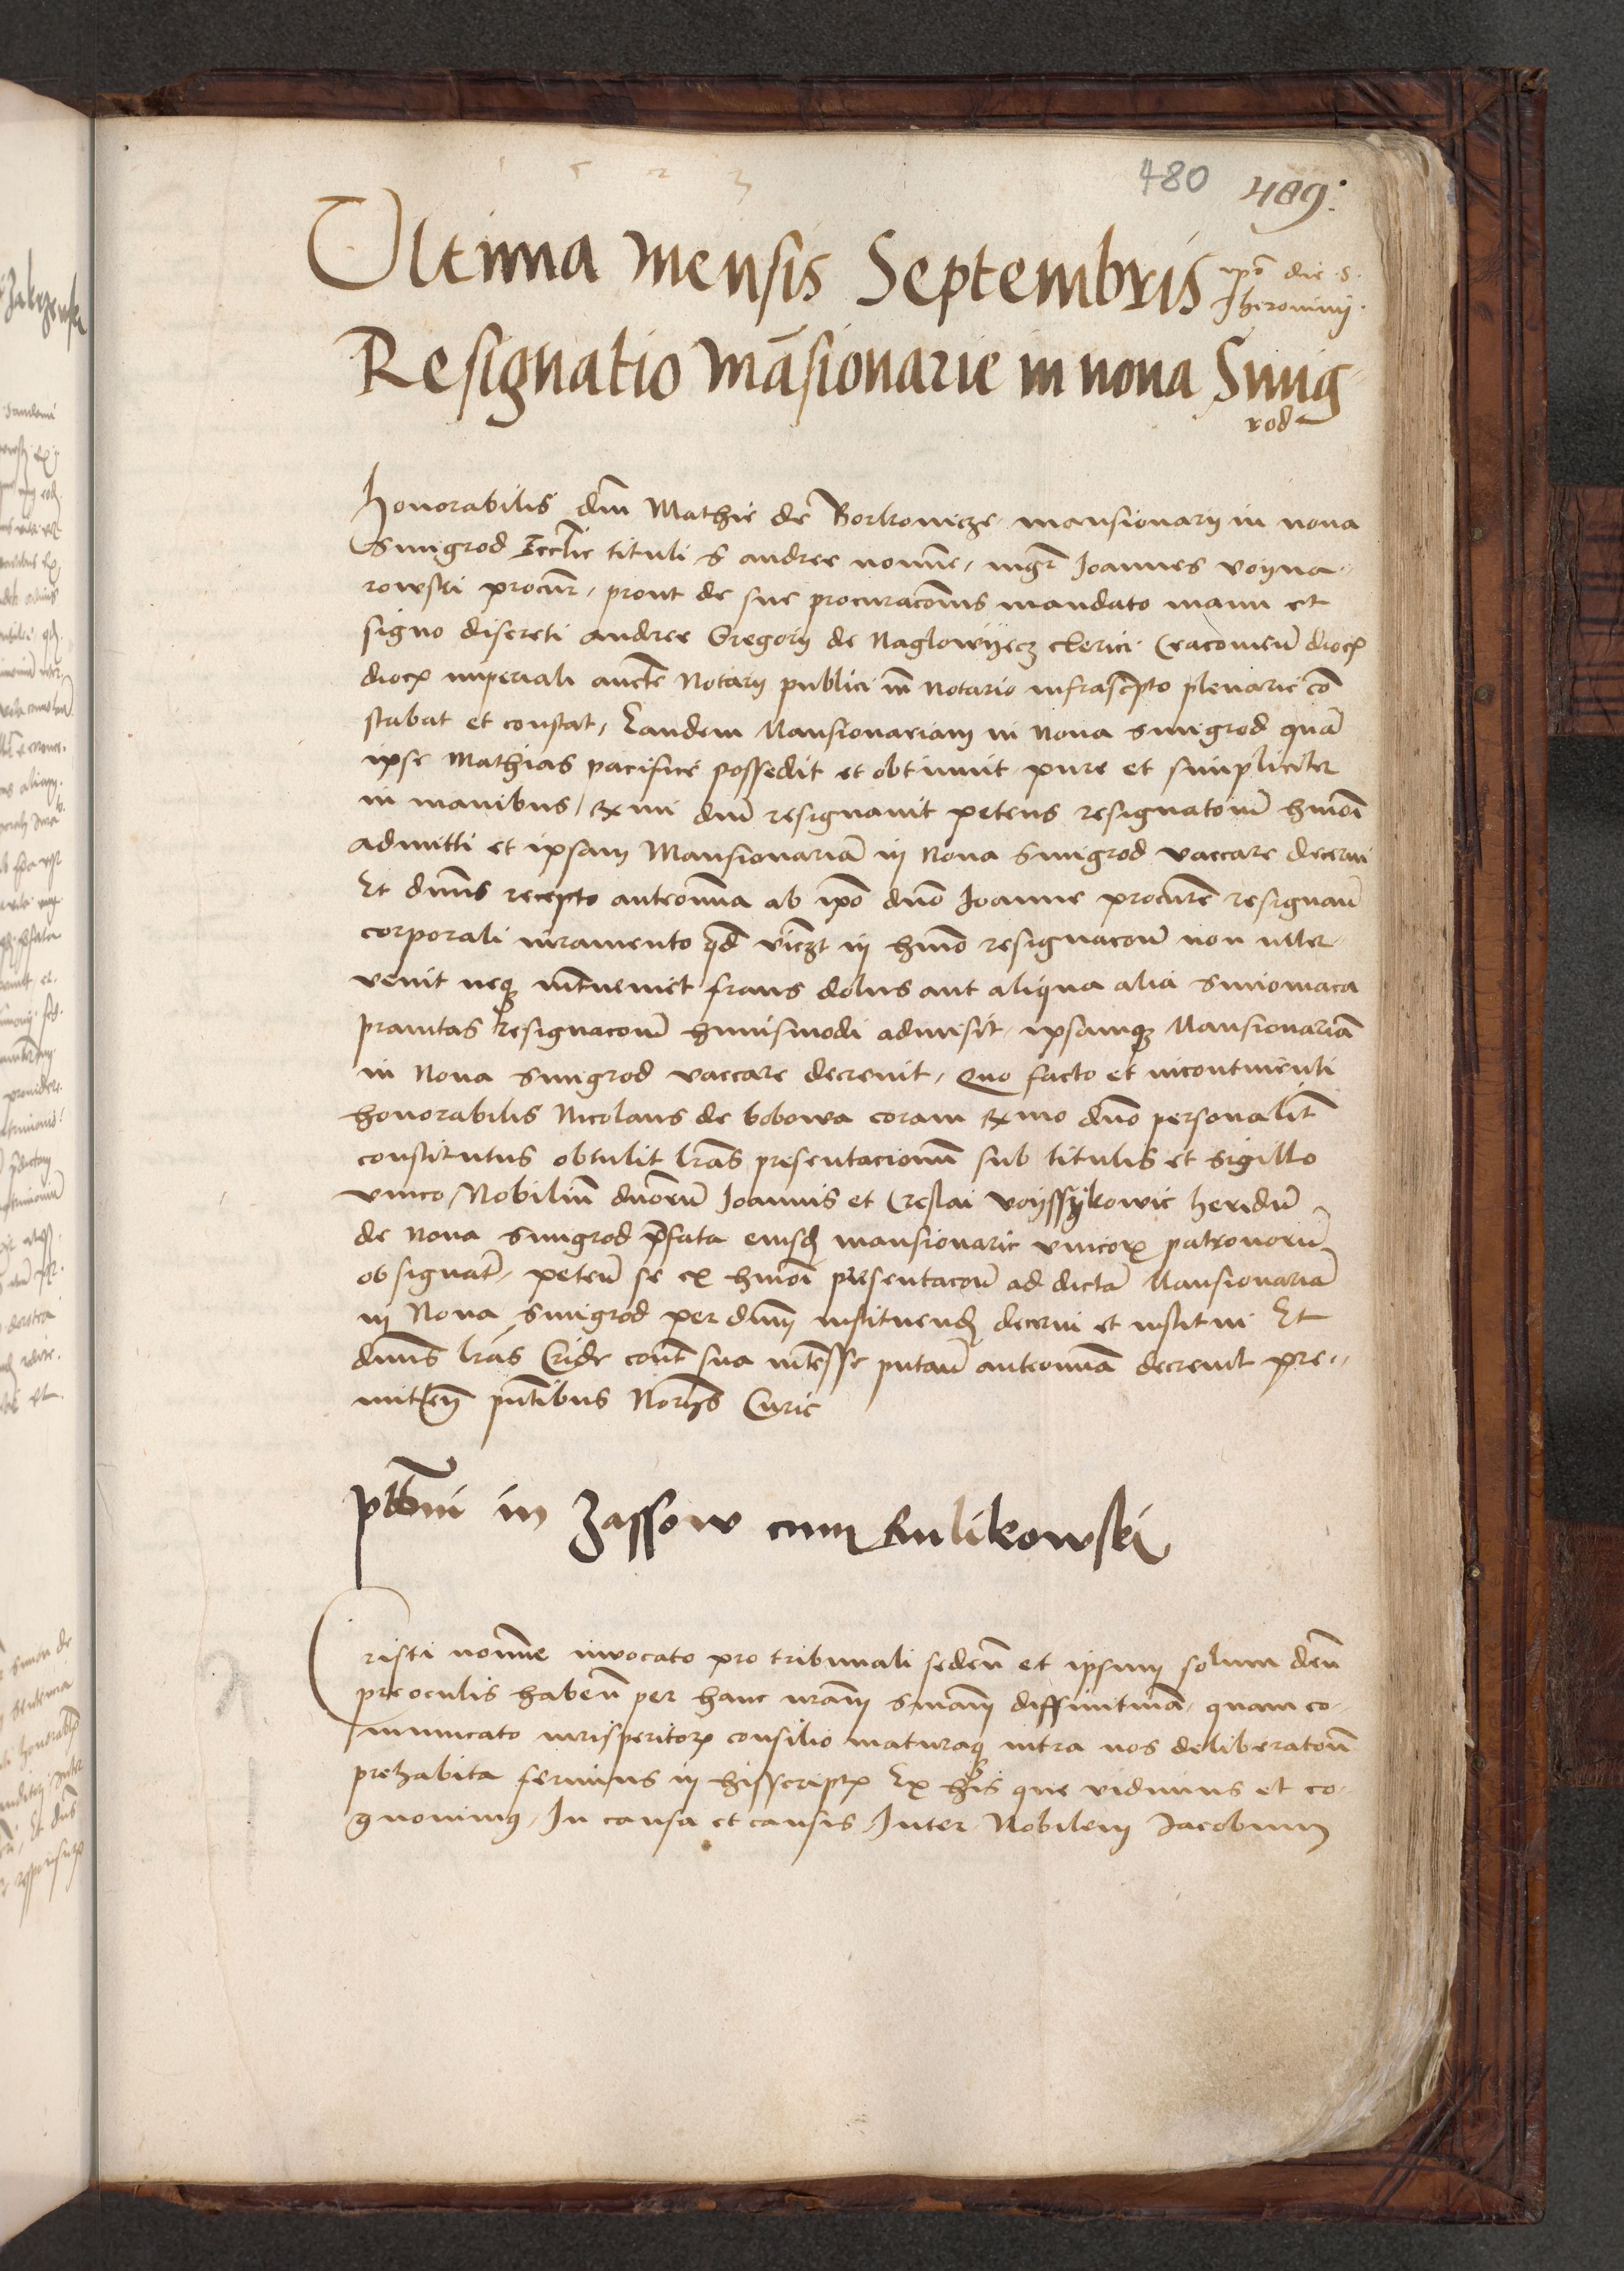 1 5 2 3
480 489:
Ultima mensis Septembris ipō die .s.
Jheronimij.
Resignatio mãsionarie in nova Smig
rod
Honorabilis dñi Mathie de Borkovicze mansionarij in nova
Smigrod Eccłie tituli s andree nomĩe, mgr̃ Joannes voyna
rowski procur̃, prout de sue procuracõnis mandato manu et
signo discreti andree Gregorij de Naglowijecz clerici Cracovień dioc̃
dioc̃ imperiali auctẽ Notarij publici m̃ Notario infrasc̃pto plenarie cõ
stabat et constat, Eandem Mansionariam in Nova smigrod quã
ipse Mathias pacifice possedit et obtinuit pure et simpliciter
in manibus Rx mi dñi resignavit petens resignatõnẽ hm̃oi
admitti et ipsam Mansionariã in Nova smigrod vaccare decerni
Et dñus recepto anteom̃ia ab ipõ dño Joanne procur̃e resignañ
corporali iuramento qd̃ in hm̃o resignacõne non inter
venit neq̃ int̃veniet fraus dolus aut aliqua alia simoniaca
pravitas resignacõnẽ huiusmodi admisit, ipsamq̃ Mansionariã
in Nova smigrod vaccare decrevit, Quo facto et incontinenti
honorabilis Nicolaus de bobowa coram Rx mo dño personalit̃
constitutus obtulit lr̃as presentacionum sub titulis et sigillo
unico Nobiliũ dñorũ Joannis et Creslai voijssijkowic heredũ
de Nova smigrod p̃fata eiusd̃ mansionarie unicor̃ patronorũ
obsignat̃, peteñ se ex hm̃oi presentacõne ad dictã Mansionariã
in Nova smigrod per dñum instituend̃ decerni et institui Et
dñus lr̃as Cride cont̃ sua int̃esse putañ anteom̃ia decrevit pre
mitteñ pñtibus Nor̃ijs Curie
płbani in Zassow cum Kulikowski
Cristi nomĩe invocato pro tribunali sedeñ et ipsum solum deũ
pre oculis habeñ per hanc nr̃am sniam diffinitivã, quam co
municato iurisperitor̃ consilio maturaq̃ intra nos deliberatõne
prehabita ferimus in hijsscript̃ Ex his que vidimus et co
gnovimus, In causa et causis Inter Nobilem Jacobum